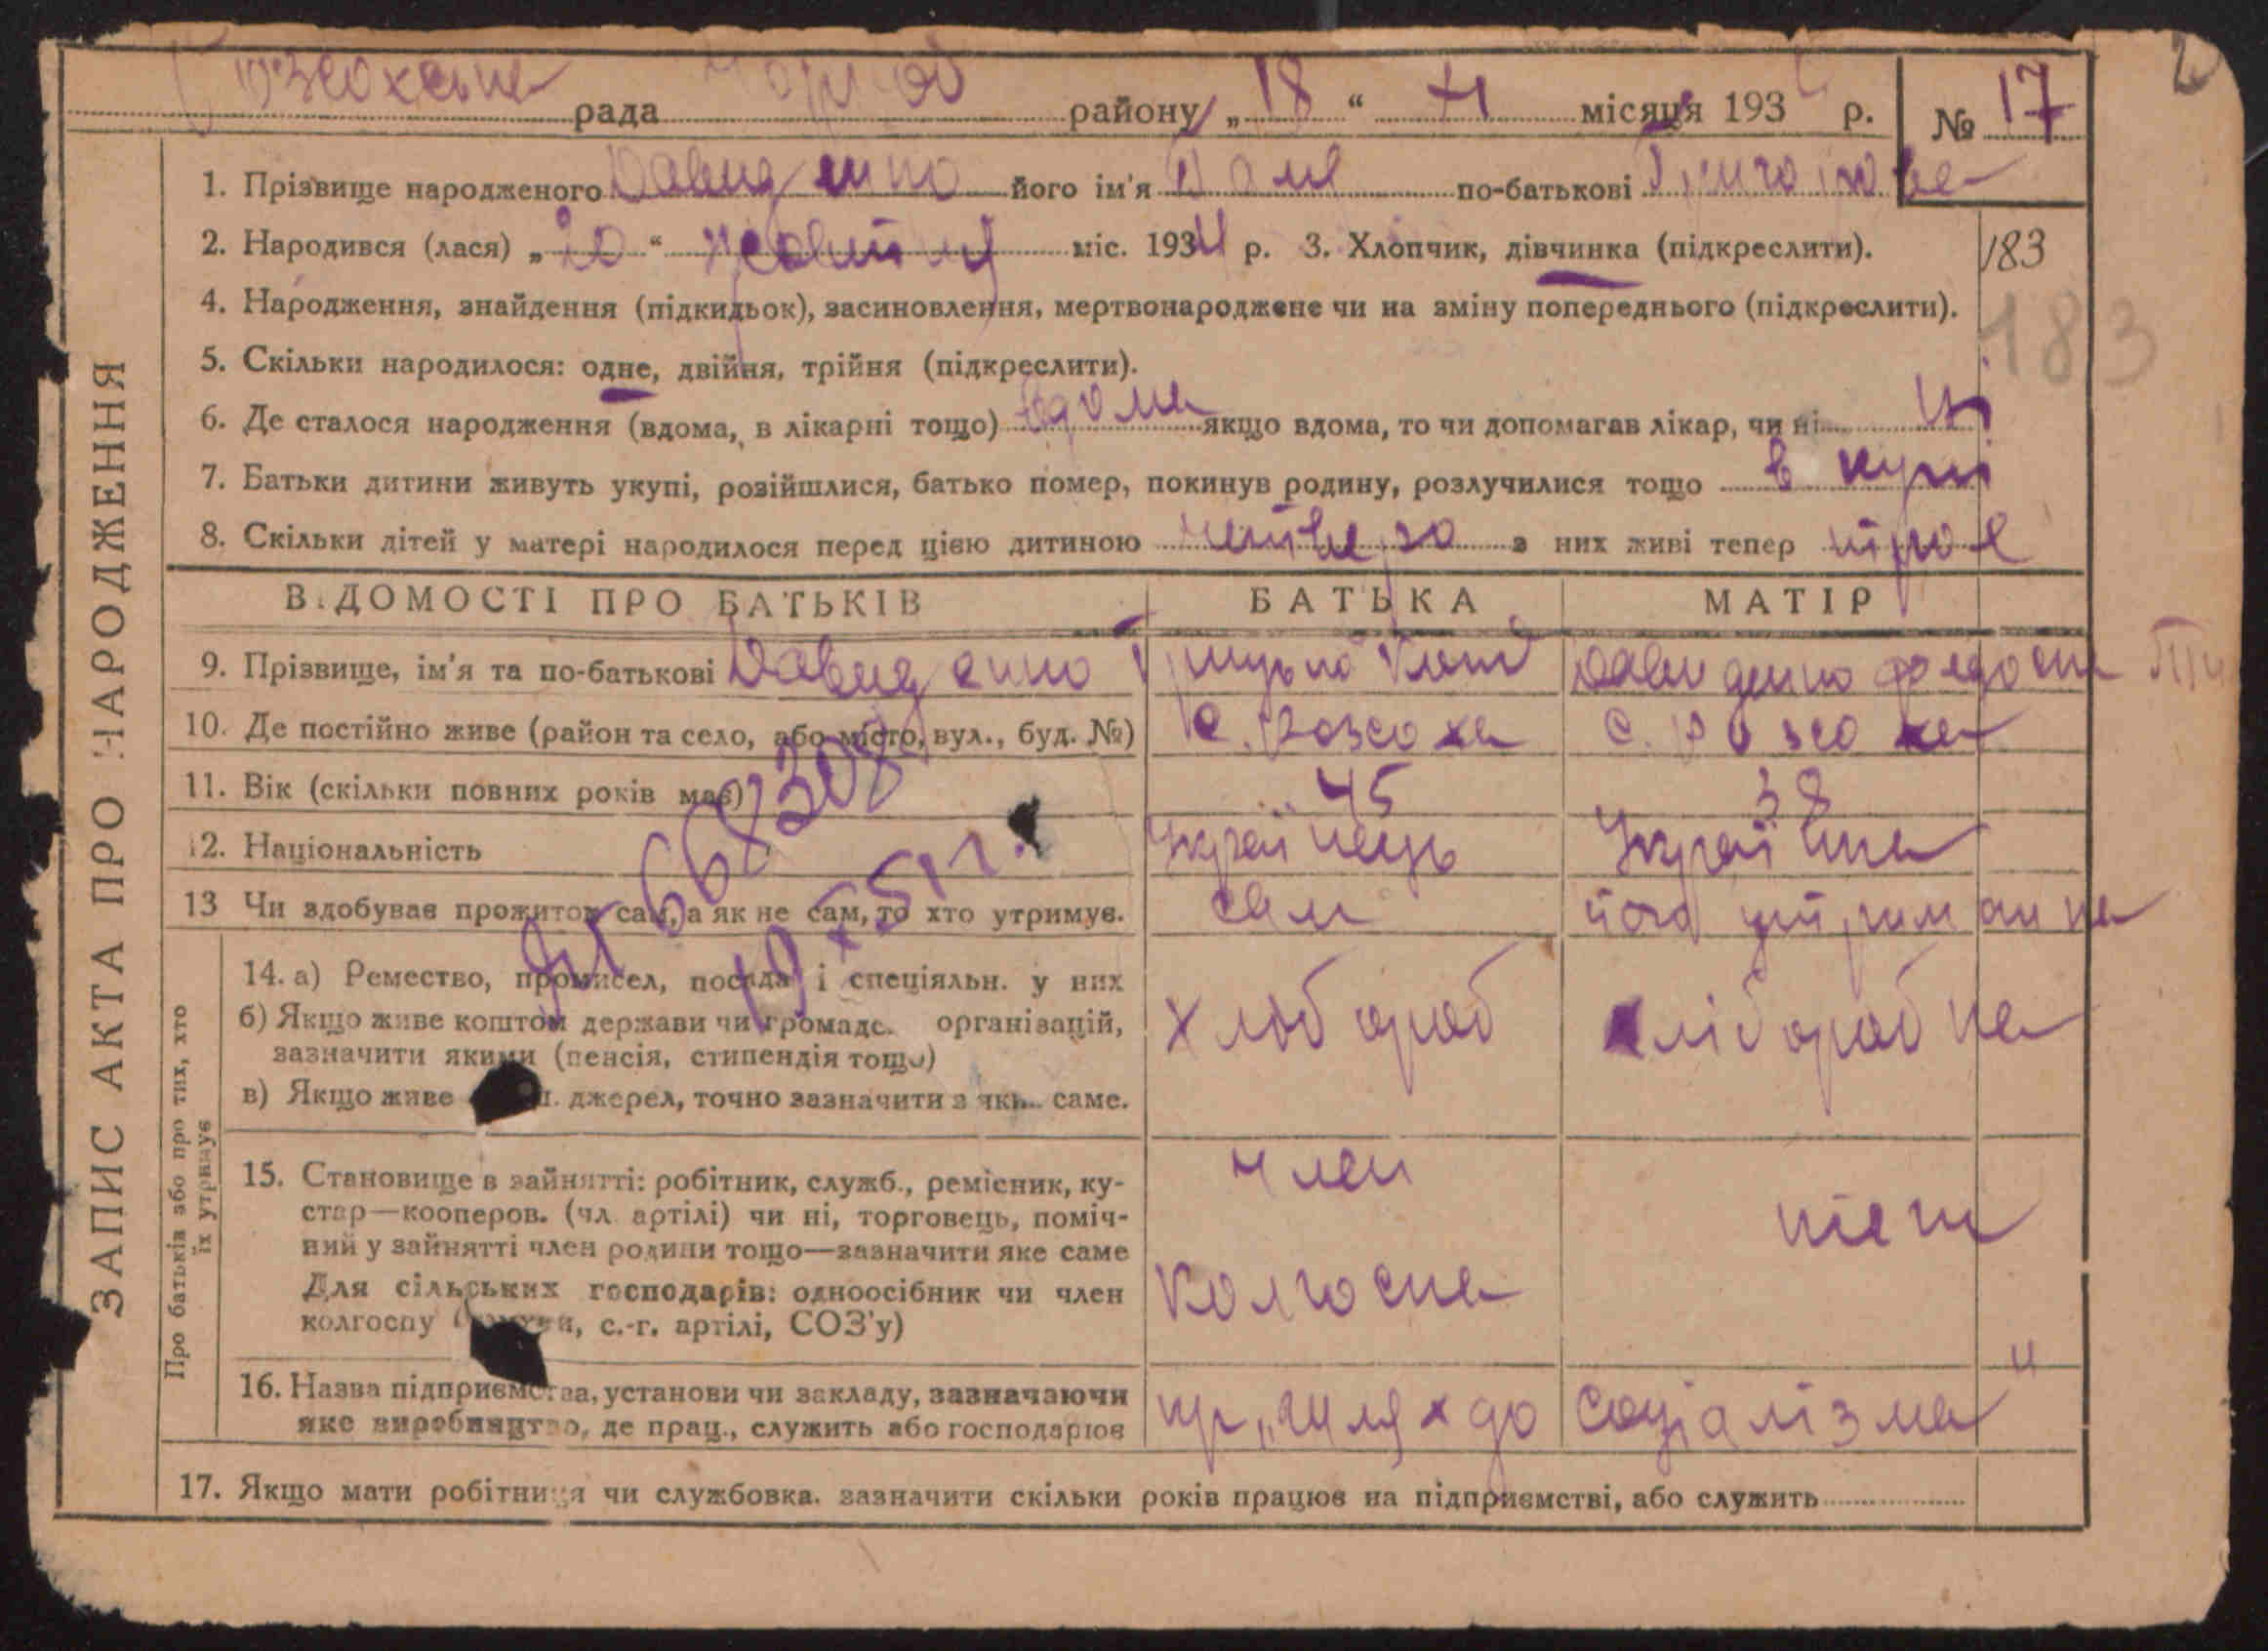 рада Чорноб району „18“ XI місяця 193 р. № 17
1. Прізвище народженого Давиденко його ім'я Галя по-батькові Григорова
2. Народився (лася) „20“ жовтня міс. 1934 р. 3. Хлопчик, дівчинка (підкреслити).
183
4. Народження, знайдення (підкидьок), засиновлення, мертвонароджене чи на зміну попереднього (підкреслити).
183
5. Скільки народилося: одне, двійня, трійня (підкреслити).
6. Де сталося народження (вдома, в лікарні тощо) вдома якщо вдома, то чи допомагав лікар, чи ні ні
7. Батьки дитини живуть укупі, розійшлися, батько помер, покинув родину, розлучилися тощо в купі
8. Скільки дітей у матері народилося перед цією дитиною четверо з них живі тепер троє
ВІДОМОСТІ ПРО БАТЬКІВ БАТЬКА МАТІР
9. Прізвище, ім'я та по-батькові Давиденко Грицько Давиденко Федоска
10. Де постійно живе (район та село, або місто, вул., буд. №) с. Розсоха с. Розсоха
11. Вік (скільки повних років має) 45 38
12. Національність Українець Українка
13 Чи здобуває прожиток сам, а як не сам, то хто утримує. сам його утриманка
668308
19 х 51 г.
14. а) Ремество, промисел, посада і спеціяльн. у них хлібороб хліборобка
б) Якщо живе коштом держави чи громадс. організацій,
зазначити якими (пенсія, стипендія тощо)
в) Якщо живе джерел, точно зазначити з яких саме.
15. Становище в зайнятті: робітник, служб., ремісник, ку-
стар—кооперов. (чл. артілі) чи ні, торговець, поміч-
ний у зайнятті член родини тощо—зазначити яке саме
Для сільських господарів: одноосібник чи член
колгоспу с.-г. артілі, СОЗ'у)
член колгоспа теж
16. Назва підприємства, установи чи закладу, зазначаючи
яке виробництво, де прац., служить або господарює
„Шлях до соціалізма“
17. Якщо мати робітниця чи службовка, зазначити скільки років працює на підприємстві, або служить
ЗАПИС АКТА ПРО НАРОДЖЕННЯ
Про батьків або про тих, хто
їх утримує